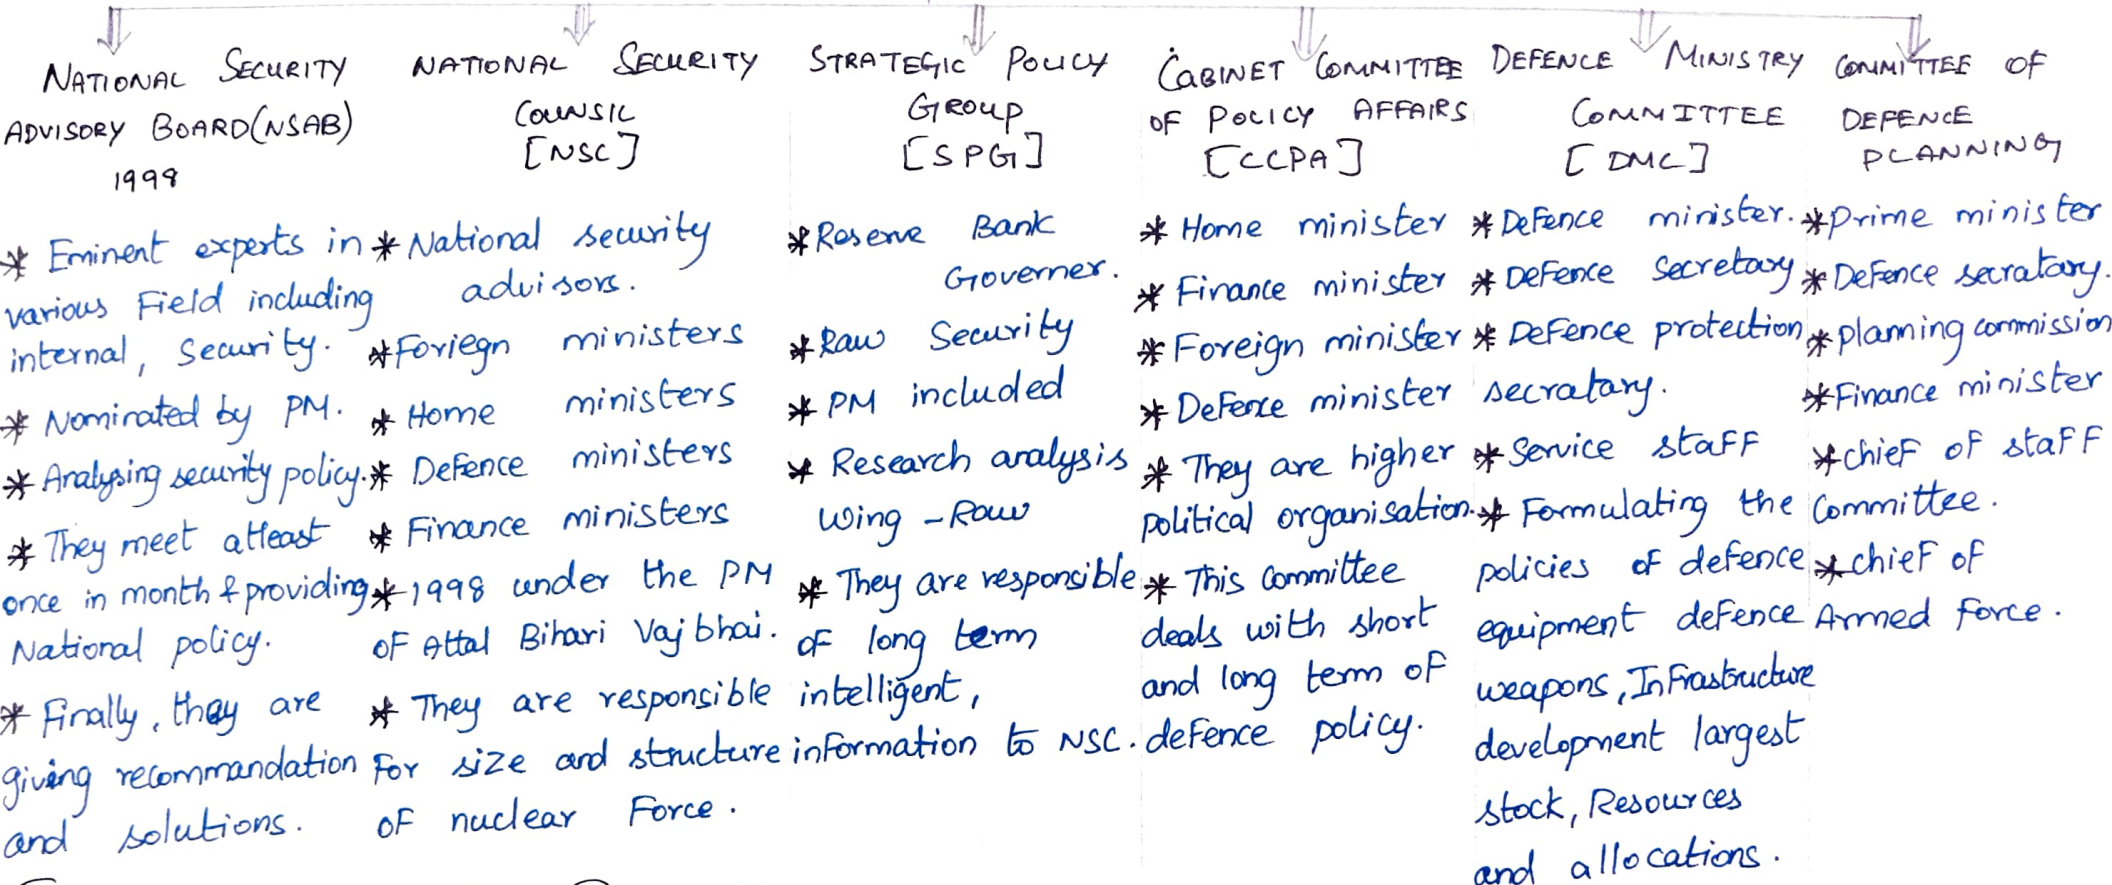 NATIONAL SECURITY
ADVISORY BOARD(NSAB)
1998
* Eminent experts in
various Field including
internal, Security.
* Nominated by PM.
* Analysing security policy.
* They meet atleast
once in month & providing
National policy.
* Finally, they are
giving recommandation
and solutions.
NATIONAL SECURITY
COUNSIL
[NSC]
* National security
advisors.
* Foriegn ministers
* Home ministers
* Defence ministers
* Finance ministers
* 1998 under the PM
of Attal Bihari Vajbhai.
* They are responsible
For size and structure
of nuclear Force.
STRATEGIC POLICY
GROUP
[SPG]
* Reserve Bank
Governer.
* Raw Security
* PM included
* Research analysis
Wing - Raw
* They are responsible
of long term
intelligent,
information to NSC.
CABINET COMMITTEE
OF POLICY AFFAIRS
[CCPA]
* Home minister
* Finance minister
* Foreign minister
* Defence minister
* They are higher
political organisation.
* This Committee
deals with short
and long term of
defence policy.
DEFENCE MINISTRY
COMMITTEE
[DMC]
* Defence minister.
* Defence Secretary
* Defence protection
secratary.
* Service staff
* Formulating the
policies of defence
equipment defence
weapons, Infrastructure
development largest
stock, Resources
and allocations.
COMMITTEE OF
DEFENCE
PLANNING
* Prime minister
* Defence secratary.
* planning commission
* Finance minister
* chief of staff
Committee.
* chief of
Armed force.